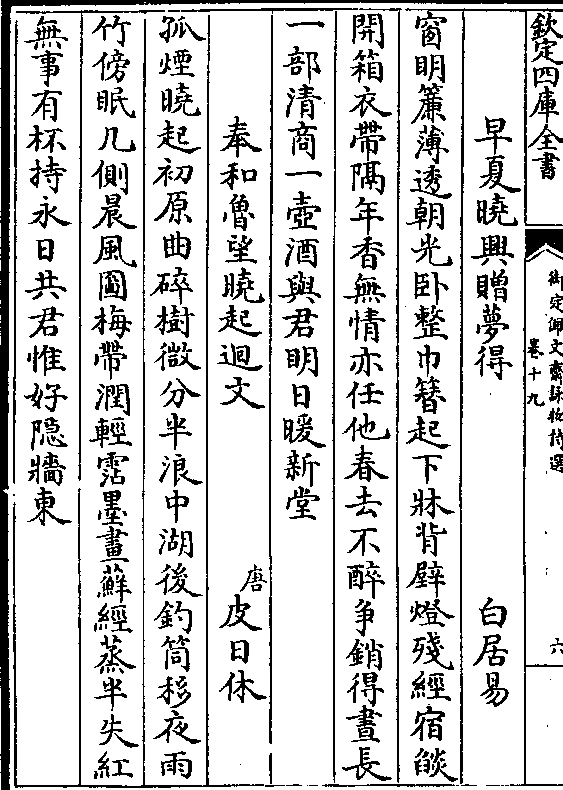 欽定四庫全書
御定佩文齋詠物詩選
卷十九
六
早夏曉興贈夢得
白居易
窗明簾薄透朝光卧整巾簪起下牀背壁燈殘經宿燄
開箱衣帶隔年香無情亦任他春去不醉争銷得晝長
一部清商一壺酒與君明日暖新堂
奉和魯望曉起迴文
唐
皮日休
孤煙曉起初原曲碎樹微分半浪中湖後釣筒移夜雨
竹傍眠几側晨風圖梅帶潤輕霑墨畫蘚經蒸半失紅
無事有杯持永日共君惟好隠牆東